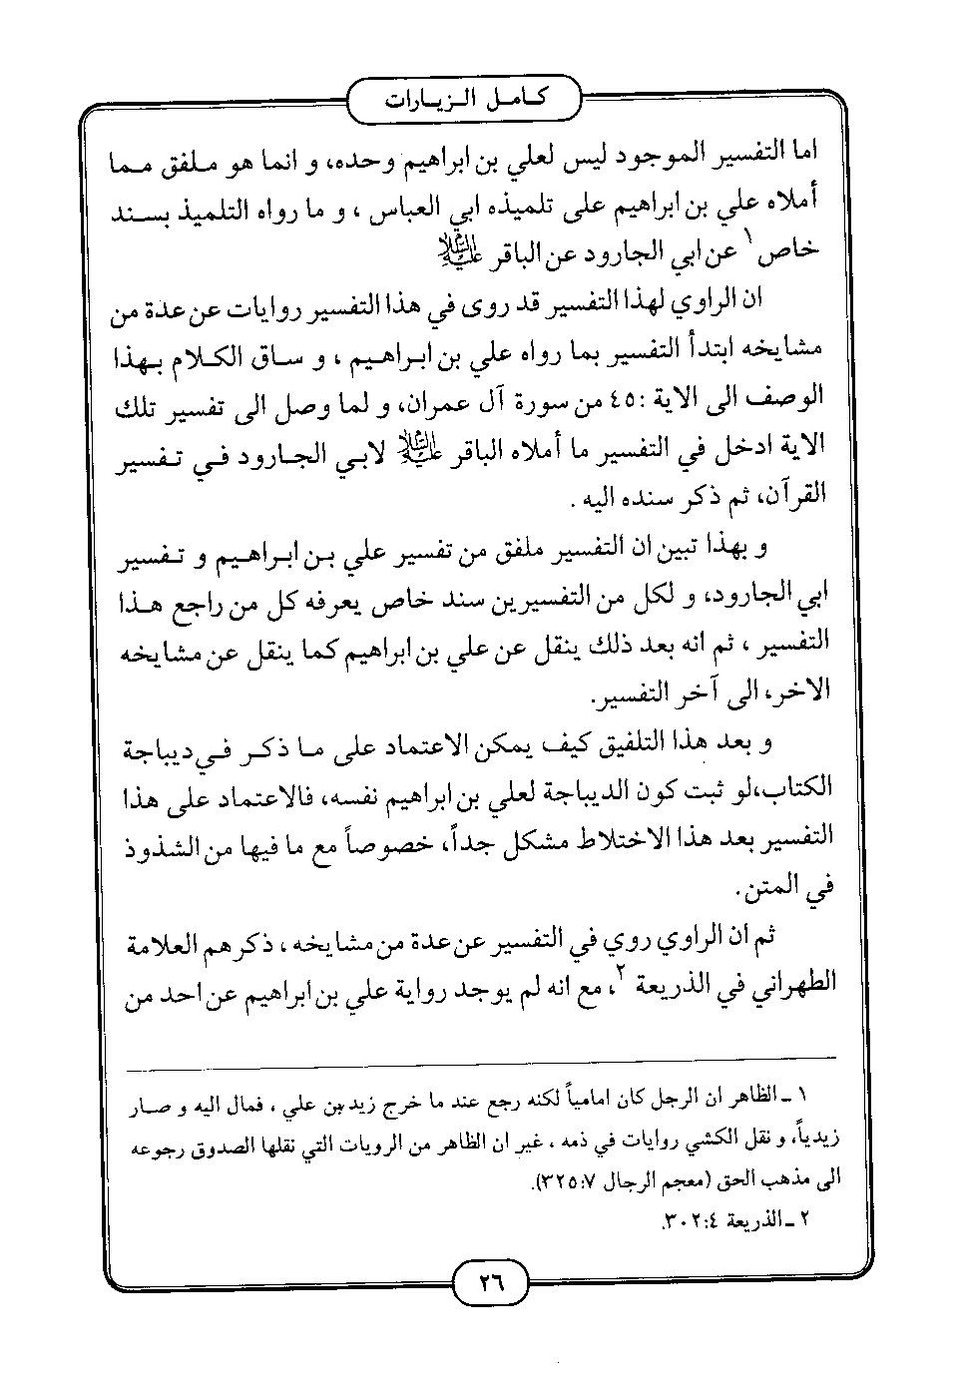 كامل الزيارات
اما التفسير الموجود ليس لعلي بن ابراهيم وحده، و انما هو ملفق مما
أملاه علي بن ابراهيم على تلميذه ابي العباس ، و ما رواه التلميذ بسند
خاص١ عن ابي الجارود عن الباقر عليه السلام
ان الراوي لهذا التفسير قد روى في هذا التفسير روايات عن عدة من
مشايخه ابتدأ التفسير بما رواه علي بن ابراهيم ، و ساق الكلام بهذا
الوصف الى الاية :٤٥ من سورة آل عمران، و لما وصل الى تفسير تلك
الاية ادخل في التفسير ما أملاه الباقر عليه السلام لابي الجارود في تفسير
القرآن، ثم ذكر سنده اليه .
و بهذا تبين ان التفسير ملفق من تفسير علي بن ابراهيم و تفسير
ابي الجارود، و لكل من التفسيرين سند خاص يعرفه كل من راجع هذا
التفسير ، ثم انه بعد ذلك ينقل عن علي بن ابراهيم كما ينقل عن مشايخه
الاخر، الى آخر التفسير.
و بعد هذا التلفيق كيف يمكن الاعتماد على ما ذكر في ديباجة
الكتاب،لو ثبت كون الديباجة لعلي بن ابراهيم نفسه، فالاعتماد على هذا
التفسير بعد هذا الاختلاط مشكل جداً، خصوصاً مع ما فيها من الشذوذ
في المتن.
ثم ان الراوي روي في التفسير عن عدة من مشايخه ، ذكرهم العلامة
الطهراني في الذريعة ٢، مع انه لم يوجد رواية علي بن ابراهيم عن احد من
١ ـ الظاهر ان الرجل كان امامياً لكنه رجع عند ما خرج زيد بن علي ، فمال اليه و صار
زيدياً، و نقل الكشي روايات في ذمه ، غير ان الظاهر من الرويات التي نقلها الصدوق رجوعه
الى مذهب الحق (معجم الرجال ٣٢٥:٧).
٢ ـ الذريعة ٣٠٢:٤.
٢٦